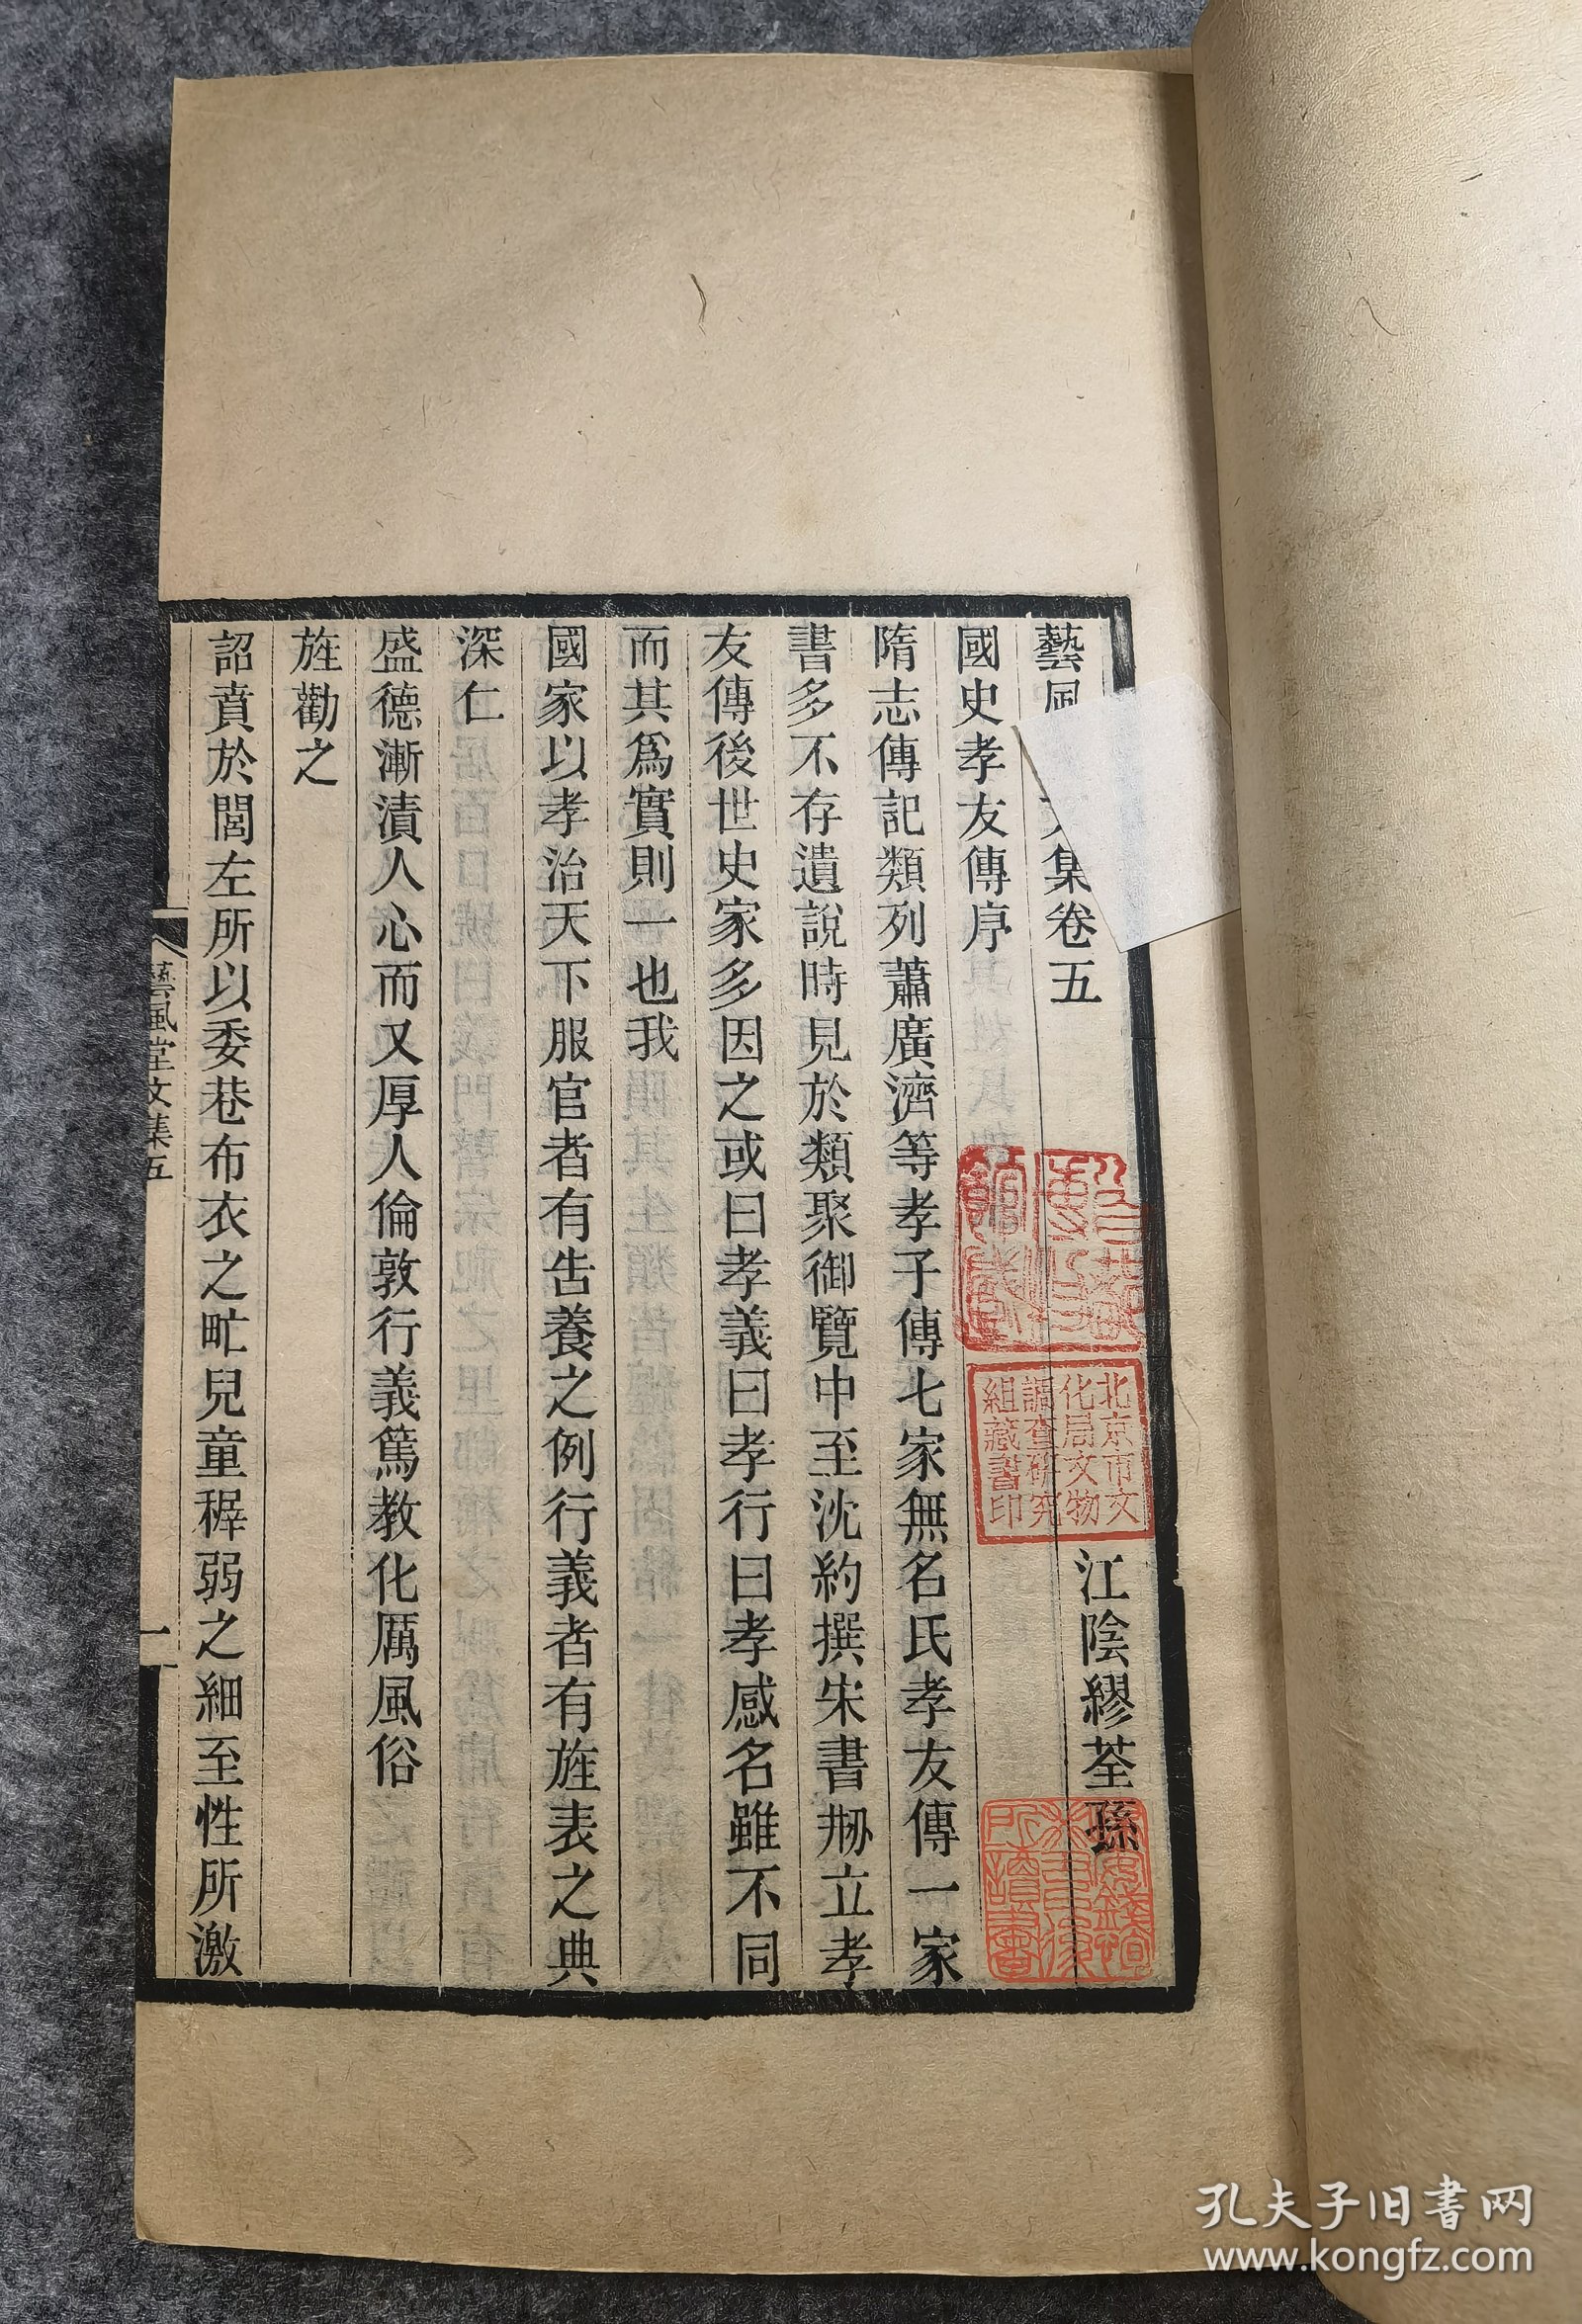 藝風文集卷五
江陰繆荃孫
國史孝友傳序
隋志傳記類列蕭廣濟等孝子傳七家無名氏孝友傳一家
書多不存遺說時見於類聚御覽中至沈約撰宋書刱立孝
友傳後世史家多因之或曰孝義曰孝行曰孝感名雖不同
而其爲實則一也我
國家以孝治天下服官者有告養之例行義者有旌表之典
深仁
盛德漸漬人心而又厚人倫敦行義篤教化厲風俗
旌勸之
詔賁於閭左所以委巷布衣之甿兒童稺弱之細至性所激
藝風堂文集五
一
北京市文
化局文物
調查研究
組藏書印
所讀書
孔夫子旧书网
www.kongfz.com